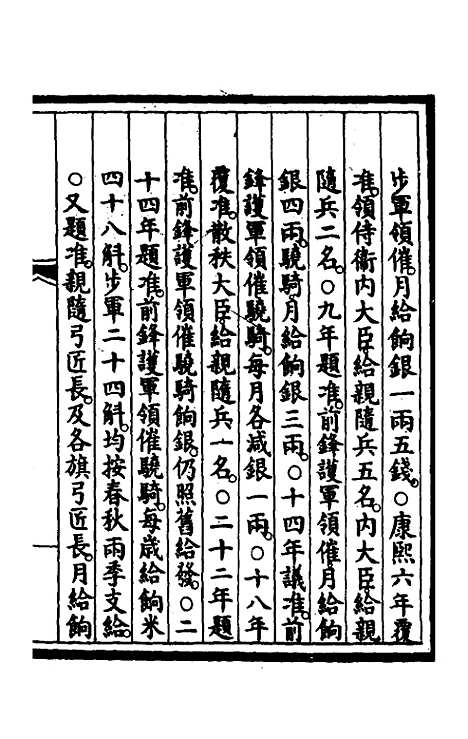 步軍領催。月給餉銀一兩五錢。○康熙六年覆
准。領侍衞內大臣。給親隨兵五名。內大臣。給親
隨兵二名。○九年題准。前鋒護軍領催。月給餉
銀四兩。驍騎。月給餉銀三兩。○十四年議准。前
鋒護軍領催驍騎。每月各減銀一兩。○十八年
覆准。散秩大臣給親隨兵一名。○二十二年題
准。前鋒護軍領催驍騎餉銀。仍照舊給發。○二
十四年題准。前鋒護軍領催驍騎。每歲給餉米
四十八斛。步軍二十四斛。均按春秋兩季支給。
○又題准。親隨弓匠長。及各旗弓匠長。月給餉